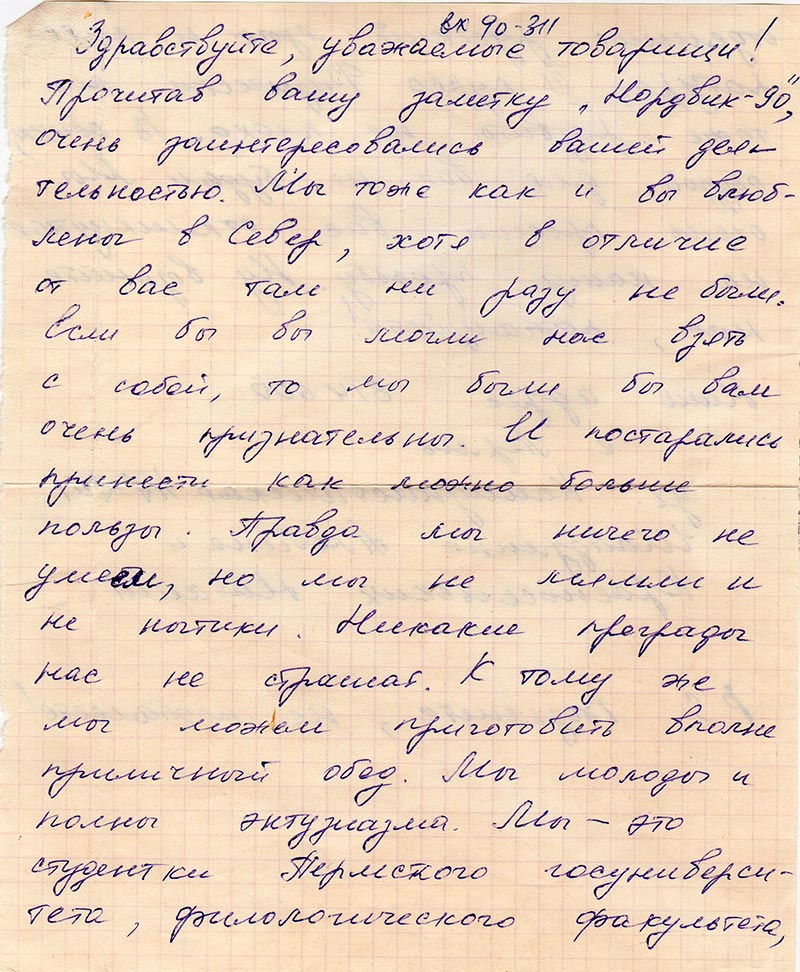 вх 90-311
Здравствуйте, уважаемые товарищи!
Прочитав вашу заметку „Нордвик-90",
очень заинтересовались вашей дея-
тельностью. Мы тоже как и вы влюб-
лены в Север, хотя в отличие
от вас там ни разу не были.
Если бы вы могли нас взять
с собой, то мы были бы вам
очень признательны. И постарались
принести как можно больше
пользы. Правда мы ничего не
умеем, но мы не хлюпли и
не нытики. Никакие преграды
нас не страшат. К тому же
мы можем приготовить вполне
приличный обед. Мы молоды и
полны энтузиазма. Мы – это
студентки Пермского госуниверси-
тета, филологического факультета,